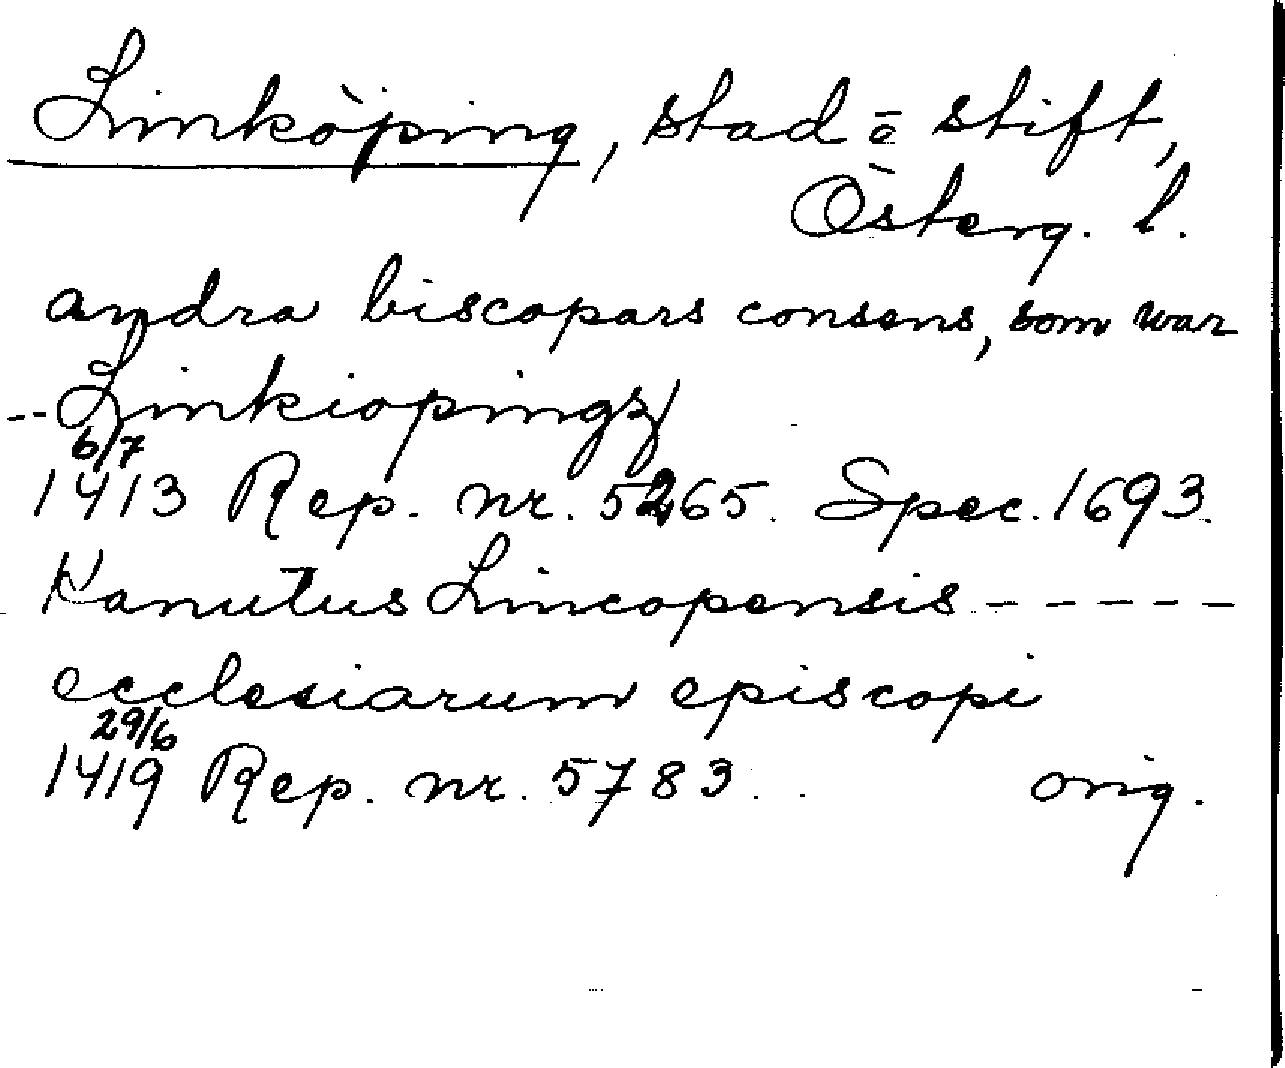 Linköping, stad o stift,
Österg. l.
andra biscopars consens, som war
-- Linkiopingz/
6/7
1413 Rep. nr. 5265. Spec. 1693.
Kanutus Lincopensis - - - - -
ecclesiarum episcopi
29/6
1419 Rep. nr. 5783. orig.